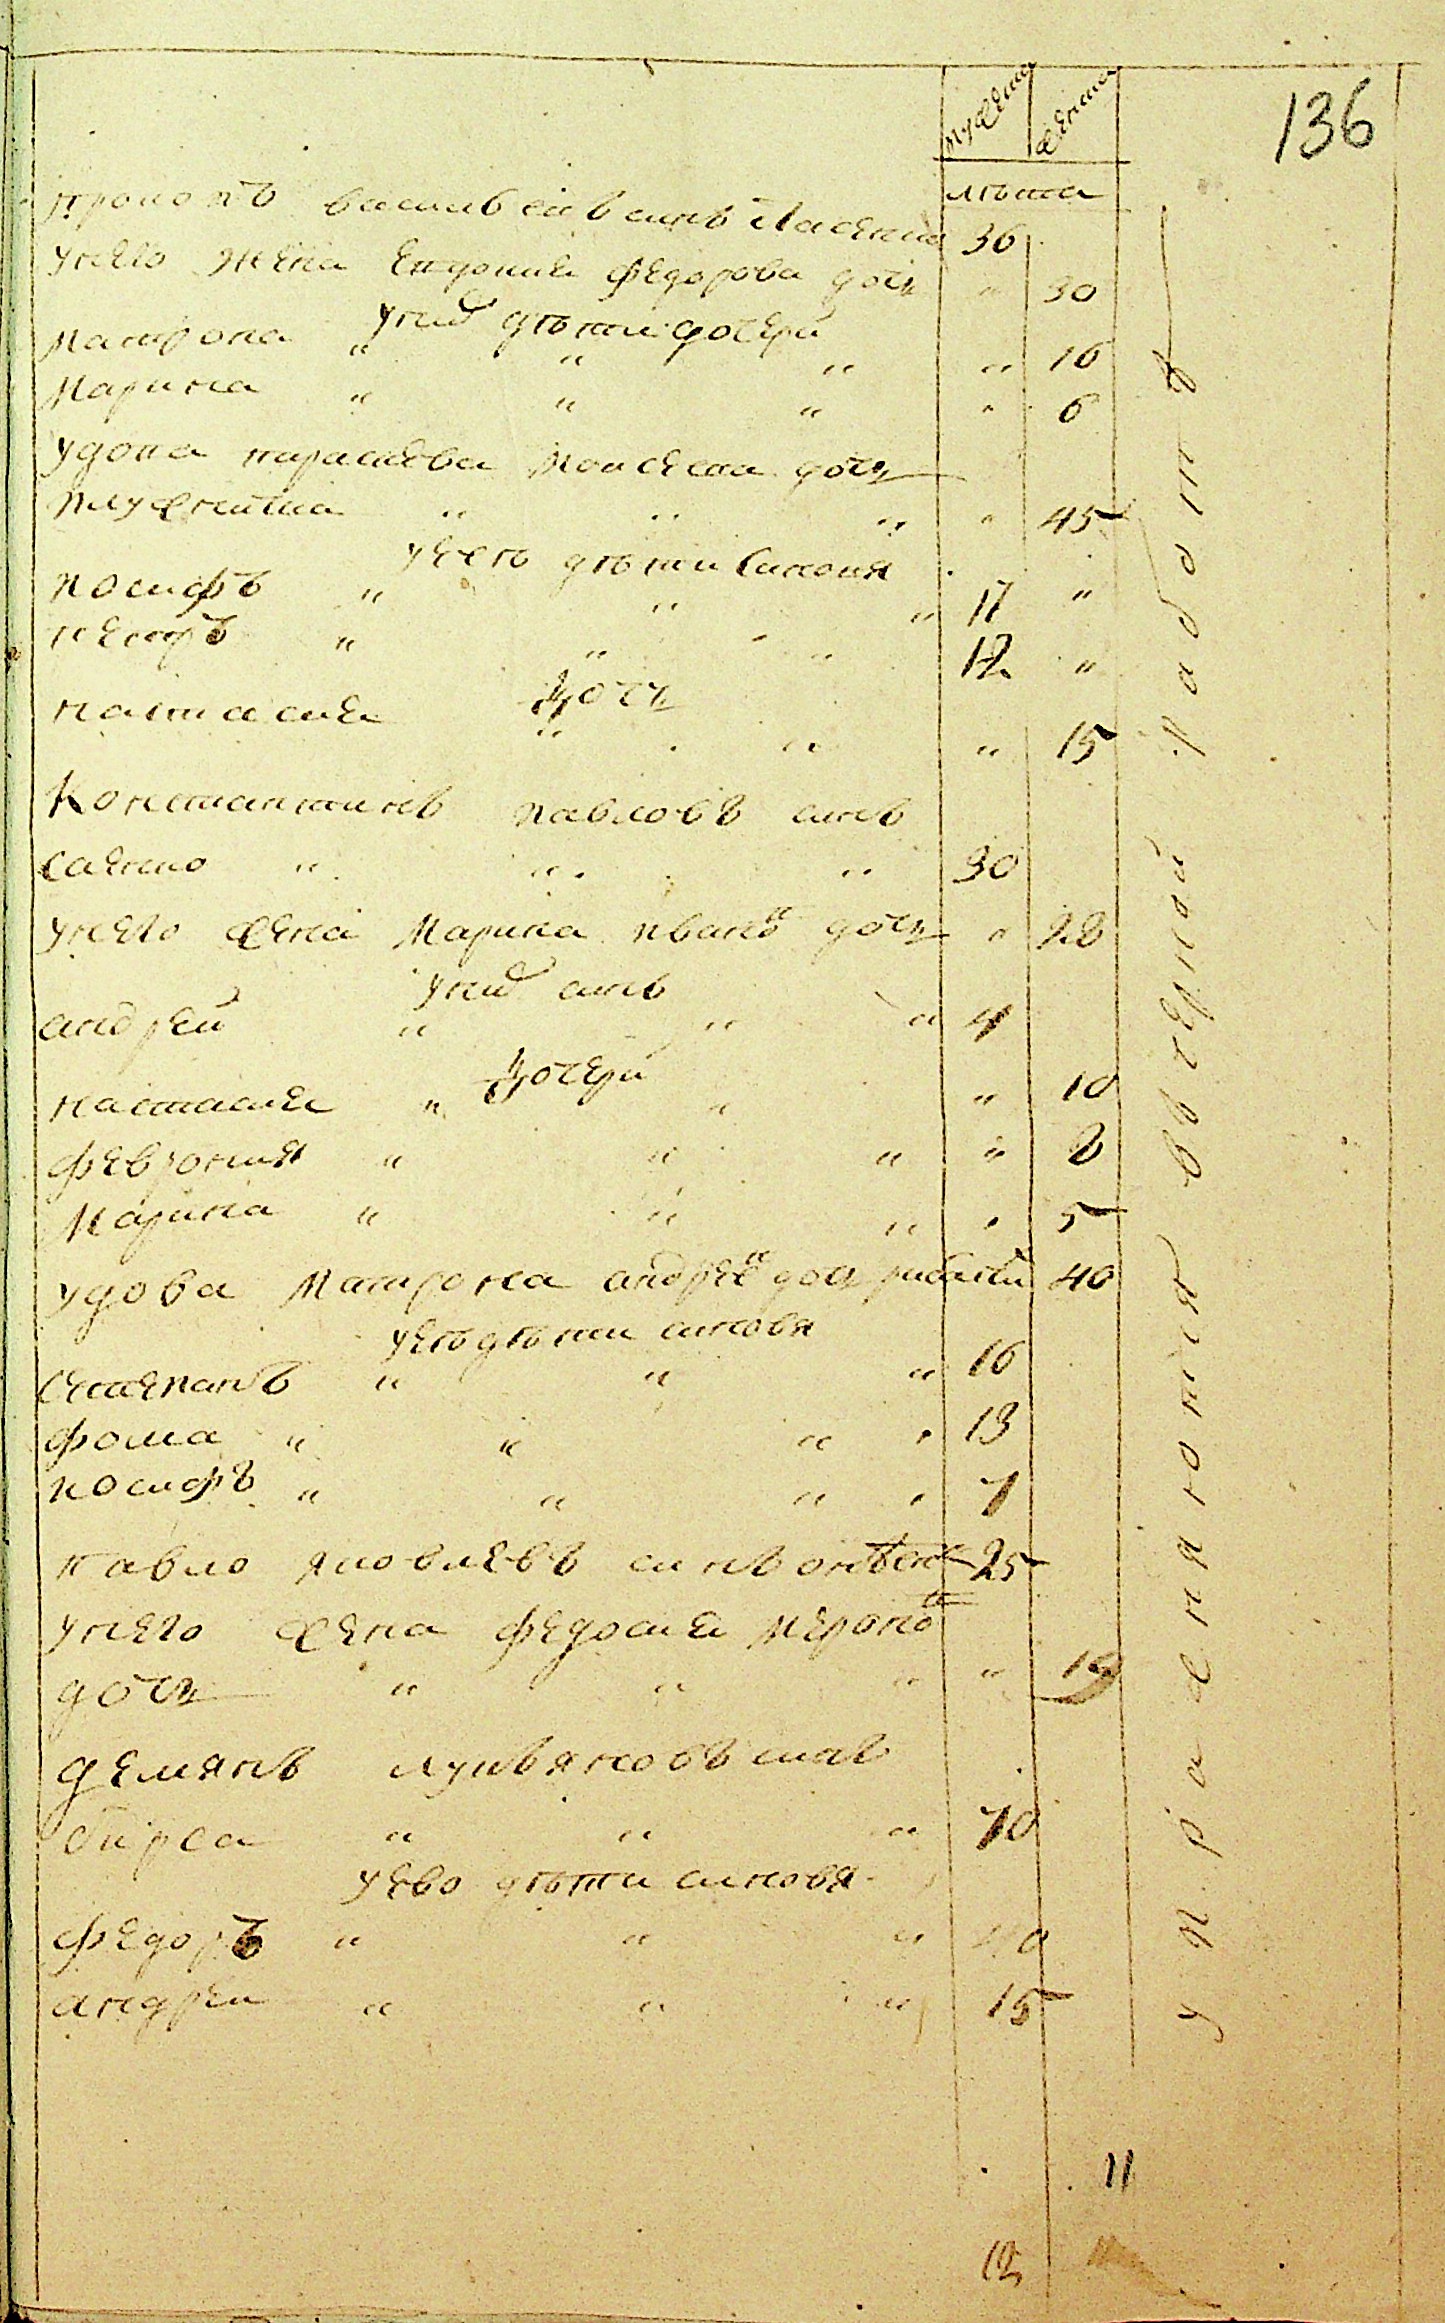 136
мужеска женска
лѣта
прокопъ василѣевъ синъ 36
унего жена Евдокия федорова дочь " 30
унихъ дѣти дочери
матрона " " " " 16
марина " " " " 6
удова параскева Моисеева дочь
" " " " 45
уеѣ дѣти синовя
иосифъ " " " 17 "
петръ " " " 12 "
дочь
настасия " " " 15
Константинъ павловъ синъ
саенко " " " 30
унего жена Марина иванова дочь " 28
унихъ синъ
андрей " " " 4
дочери
настасия " " " 10
феврония " " " " 8
Марина " " " " 5
удова Матрона андрее дочь 40
уеѣ дѣти синовя
Степанъ " " " 16
фома " " " " 13
иосифъ " " " " 7
павло яковлевъ синъ 25
унего жена федосия Мироно
дочь " " " " 19
демянъ лукъяновъ синъ
" " " 70
уево дѣти синовя
федоръ " " " 40
андрей " " " 15
11
12 11
упражняются ввѣчерной работѣ